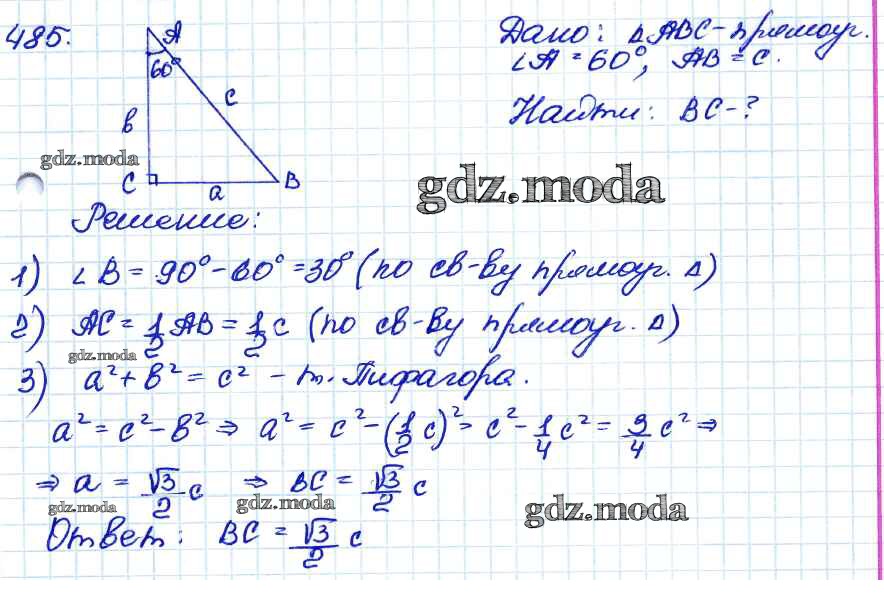 485.
Дано: △ABC - прямоуг.
∠A = 60°, AB = c.
Найти: BC - ?
A
60°
c
b
C
a
B
gdz.moda
gdz.moda
Решение:
1) ∠B = 90° - 60° = 30° (по св-ву прямоуг. △)
2) AC = 1/2 AB = 1/2 c (по св-ву прямоуг. △)
gdz.moda
3) a² + b² = c² - т. Пифагора.
a² = c² - b² ⇒ a² = c² - (1/2 c)² = c² - 1/4 c² = 3/4 c² ⇒
⇒ a = √3/2 c ⇒ BC = √3/2 c
gdz.moda
gdz.moda
gdz.moda
Ответ: BC = √3/2 c